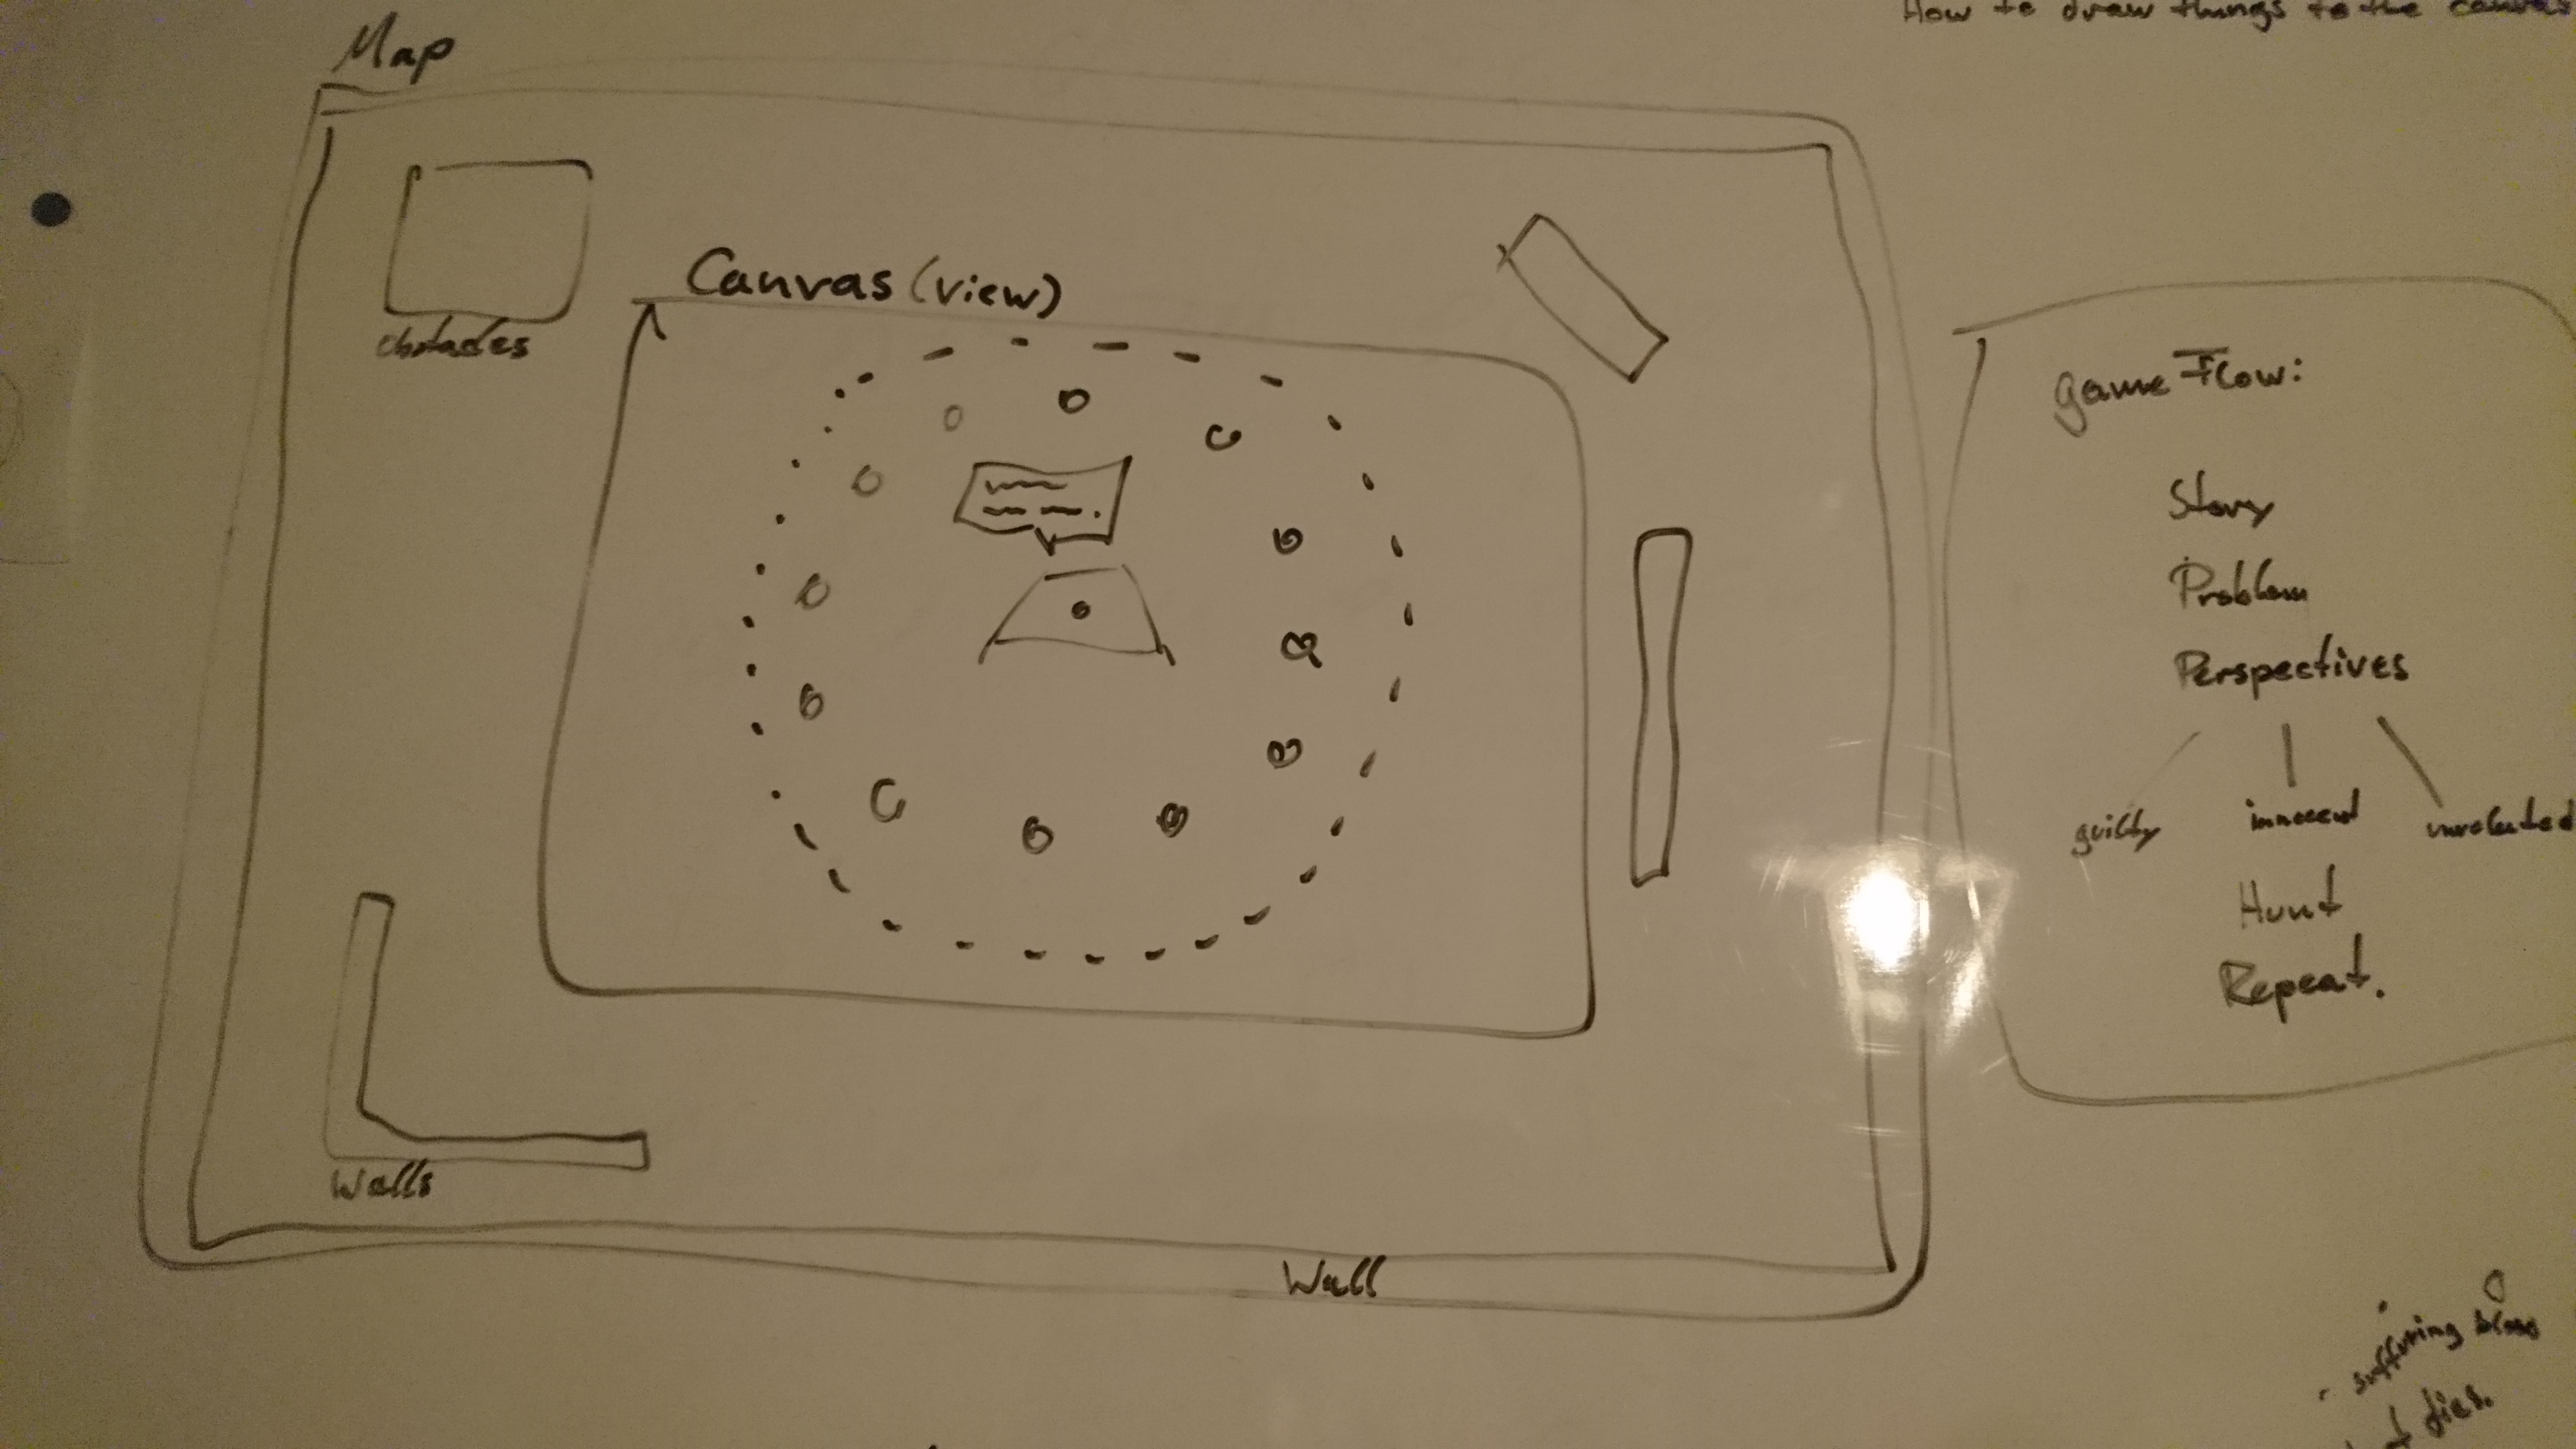 How to draw things to the canvas
Map
Canvas (view)
obstacles
Walls
Wall
game Flow:
Story
Problem
Perspectives
guilty innocent unrelated
Hunt
Repeat.
suffering
dies.